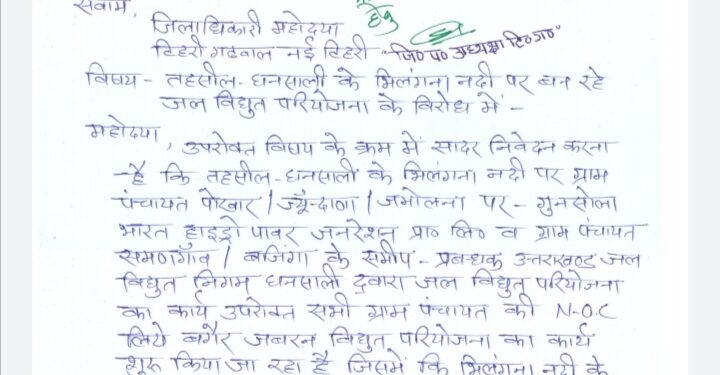 सेवामें,
हेतु
जिलाधिकारी महोदया
टिहरी गढवाल नई टिहरी - "जि० प० अध्यक्षा टि० ग०"
विषय - तहसील - घनसाली के भिलंगना नदी पर बन रहे
जल विद्युत परियोजना के विरोध में -
महोदया, उपरोक्त विषय के क्रम में सादर निवेदन करना
है कि तहसील - घनसाली के भिलंगना नदी पर ग्राम
पंचायत पोखार / ज्यून्दाणा / जमोलना पर - गुनसोला
भारत हाइड्रो पावर जनरेशन प्रा० लि० व ग्राम पंचायत
समणगाँव / बजिंगा के समीप - प्रबन्धक उत्तराखण्ड जल
विद्युत निगम घनसाली द्वारा जल विद्युत परियोजना
का कार्य उपरोक्त सभी ग्राम पंचायत की N.O.C
लिये बगैर जबरन विद्युत परियोजना का कार्य
शुरू किया जा रहा है जिसमें कि भिलंगना नदी के